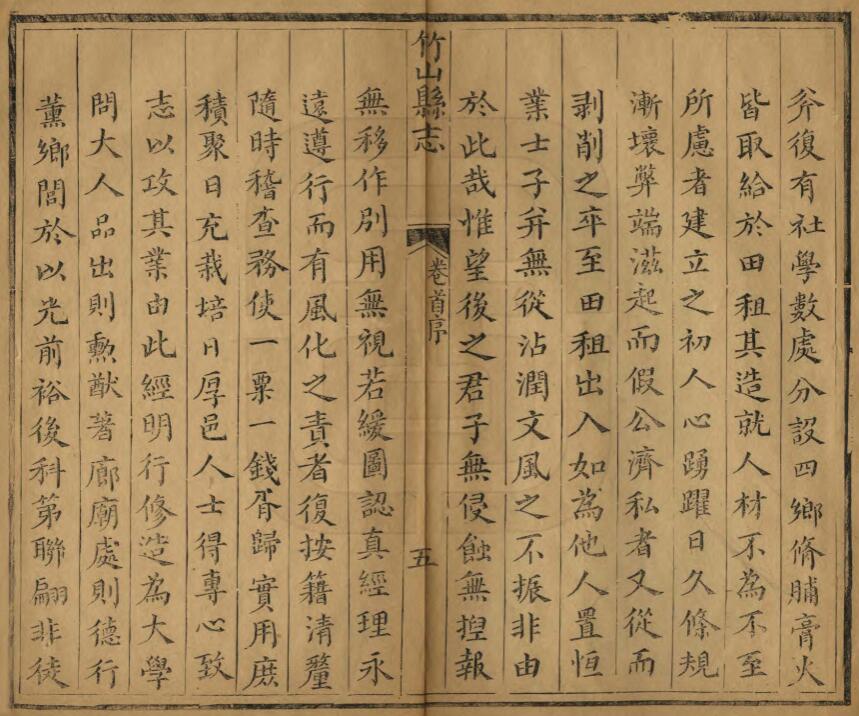 斧復有社學數處分設四鄉脩脯膏火
皆取給於田租其造就人材不為不至
所慮者建立之初人心踴躍日久條規
漸壞弊端滋起而假公濟私者又從而
剥削之卒至田租出入如為他人置恒
業士子并無從沾潤文風之不振非由
於此哉惟望後之君子無侵蝕無捏報
竹山縣志
卷首序
五
無移作別用無視若緩圖認真經理永
遠遵行而有風化之責者復按籍清釐
隨時稽查務使一粟一錢胥歸實用庶
積聚日充栽培日厚邑人士得專心致
志以攻其業由此經明行修造為大學
問大人品出則勲猷著廊廟處則德行
薰鄉閭於以光前裕後科第聯翩非徒